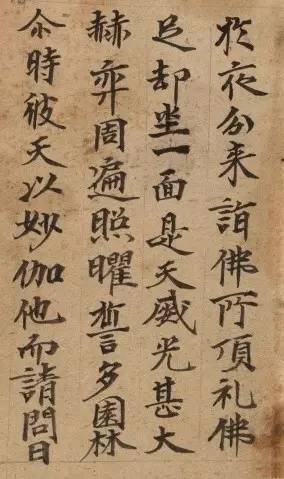 於夜分来詣佛所頂礼佛
足却坐一面是天威光甚大
赫弈周遍照曜誓多園林
尒時彼天以妙伽他而請問曰